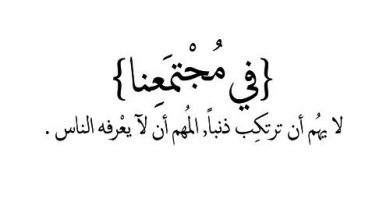 {في مُجْتمَعِنا}
لا يهُم أن ترتكِب ذنباً, المُهم أن لآ يعْرفه الناس .